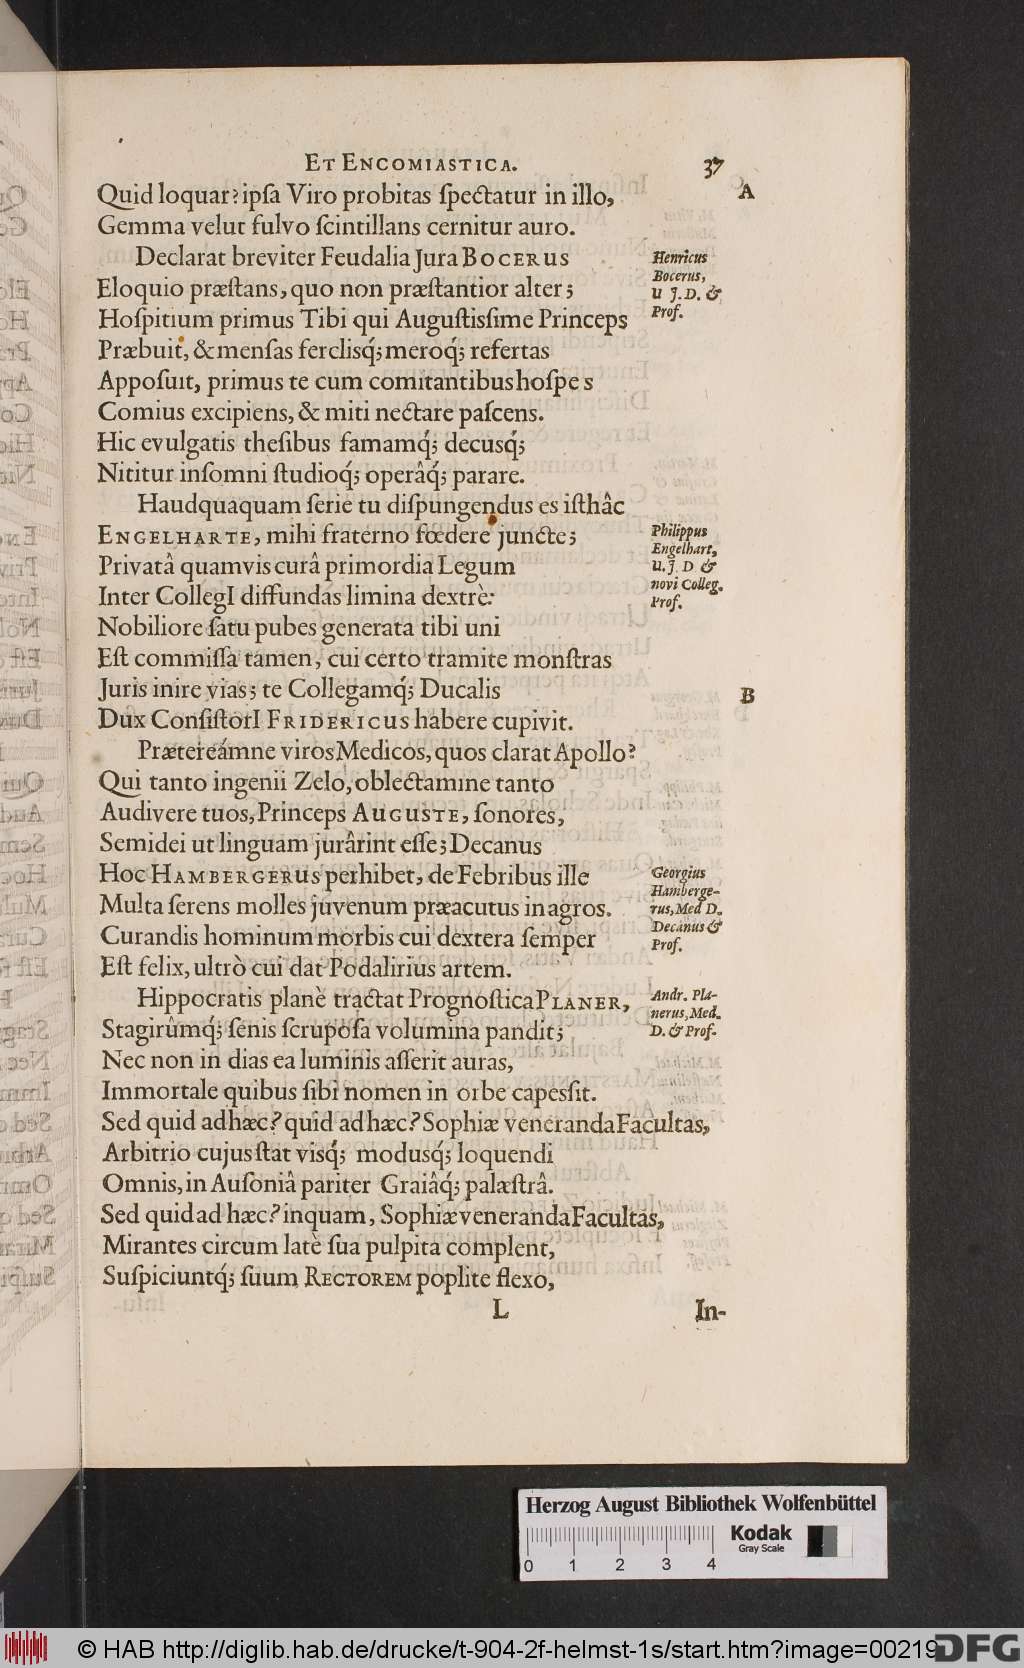 ET ENCOMIASTICA. 37
Quid loquar? ipſa Viro probitas ſpectatur in illo, A
Gemma velut fulvo ſcintillans cernitur auro.
Declarat breviter Feudalia Jura BOCERUS
Eloquio præſtans, quo non præſtantior alter;
Hoſpitium primus Tibi qui Auguſtisſime Princeps
Præbuit, & menſas ferclisq́; meroq́; refertas
Appoſuit, primus te cum comitantibus hoſpes
Comius excipiens, & miti nectare paſcens.
Hic evulgatis theſibus famamq́; decusq́;
Nititur inſomni ſtudioq́; operâq́; parare.
Haudquaquam ſerie tu diſpungendus es iſthâc
ENGELHARTE, mihi fraterno fœdere juncte;
Privatâ quamvis curâ primordia Legum
Inter CollegI diffundas limina dextrè:
Nobiliore ſatu pubes generata tibi uni
Eſt commiſſa tamen, cui certo tramite monſtras
Juris inire vias; te Collegamq́; Ducalis B
Dux ConſiſtorI FRIDERICUS habere cupivit.
Prætereámne viros Medicos, quos clarat Apollo?
Qui tanto ingenii Zelo, oblectamine tanto
Audivere tuos, Princeps AUGUSTE, ſonores,
Semidei ut linguam jurârint eſſe; Decanus
Hoc HAMBERGERUS perhibet, de Febribus ille
Multa ſerens molles juvenum præacutus in agros.
Curandis hominum morbis cui dextera ſemper
Eſt felix, ultrò cui dat Podalirius artem.
Hippocratis planè tractat Prognoſtica PLANER,
Stagirûmq́; ſenis ſcrupoſa volumina pandit;
Nec non in dias ea luminis aſſerit auras,
Immortale quibus ſibi nomen in orbe capesſit.
Sed quid ad hæc? quid ad hæc? Sophiæ veneranda Facultas,
Arbitrio cujus ſtat visq́; modusq́; loquendi
Omnis, in Auſoniâ pariter Graiâq́; palæſtrâ.
Sed quid ad hæc? inquam, Sophiæ veneranda Facultas,
Mirantes circum latè ſua pulpita complent,
Suſpiciuntq́; ſuum RECTOREM poplite flexo,
L In-
Henricus
Bocerus,
U J. D. &
Prof.
Philippus
Engelhart,
U. J. D &
novi Colleg.
Prof.
Georgius
Hamberge-
rus, Med D.
Decanus &
Prof.
Andr. Pla-
nerus, Med.
D. & Prof.
Herzog August Bibliothek Wolfenbüttel
0 1 2 3 4
Kodak
Gray Scale
© HAB http://diglib.hab.de/drucke/t-904-2f-helmst-1s/start.htm?image=00219
DFG